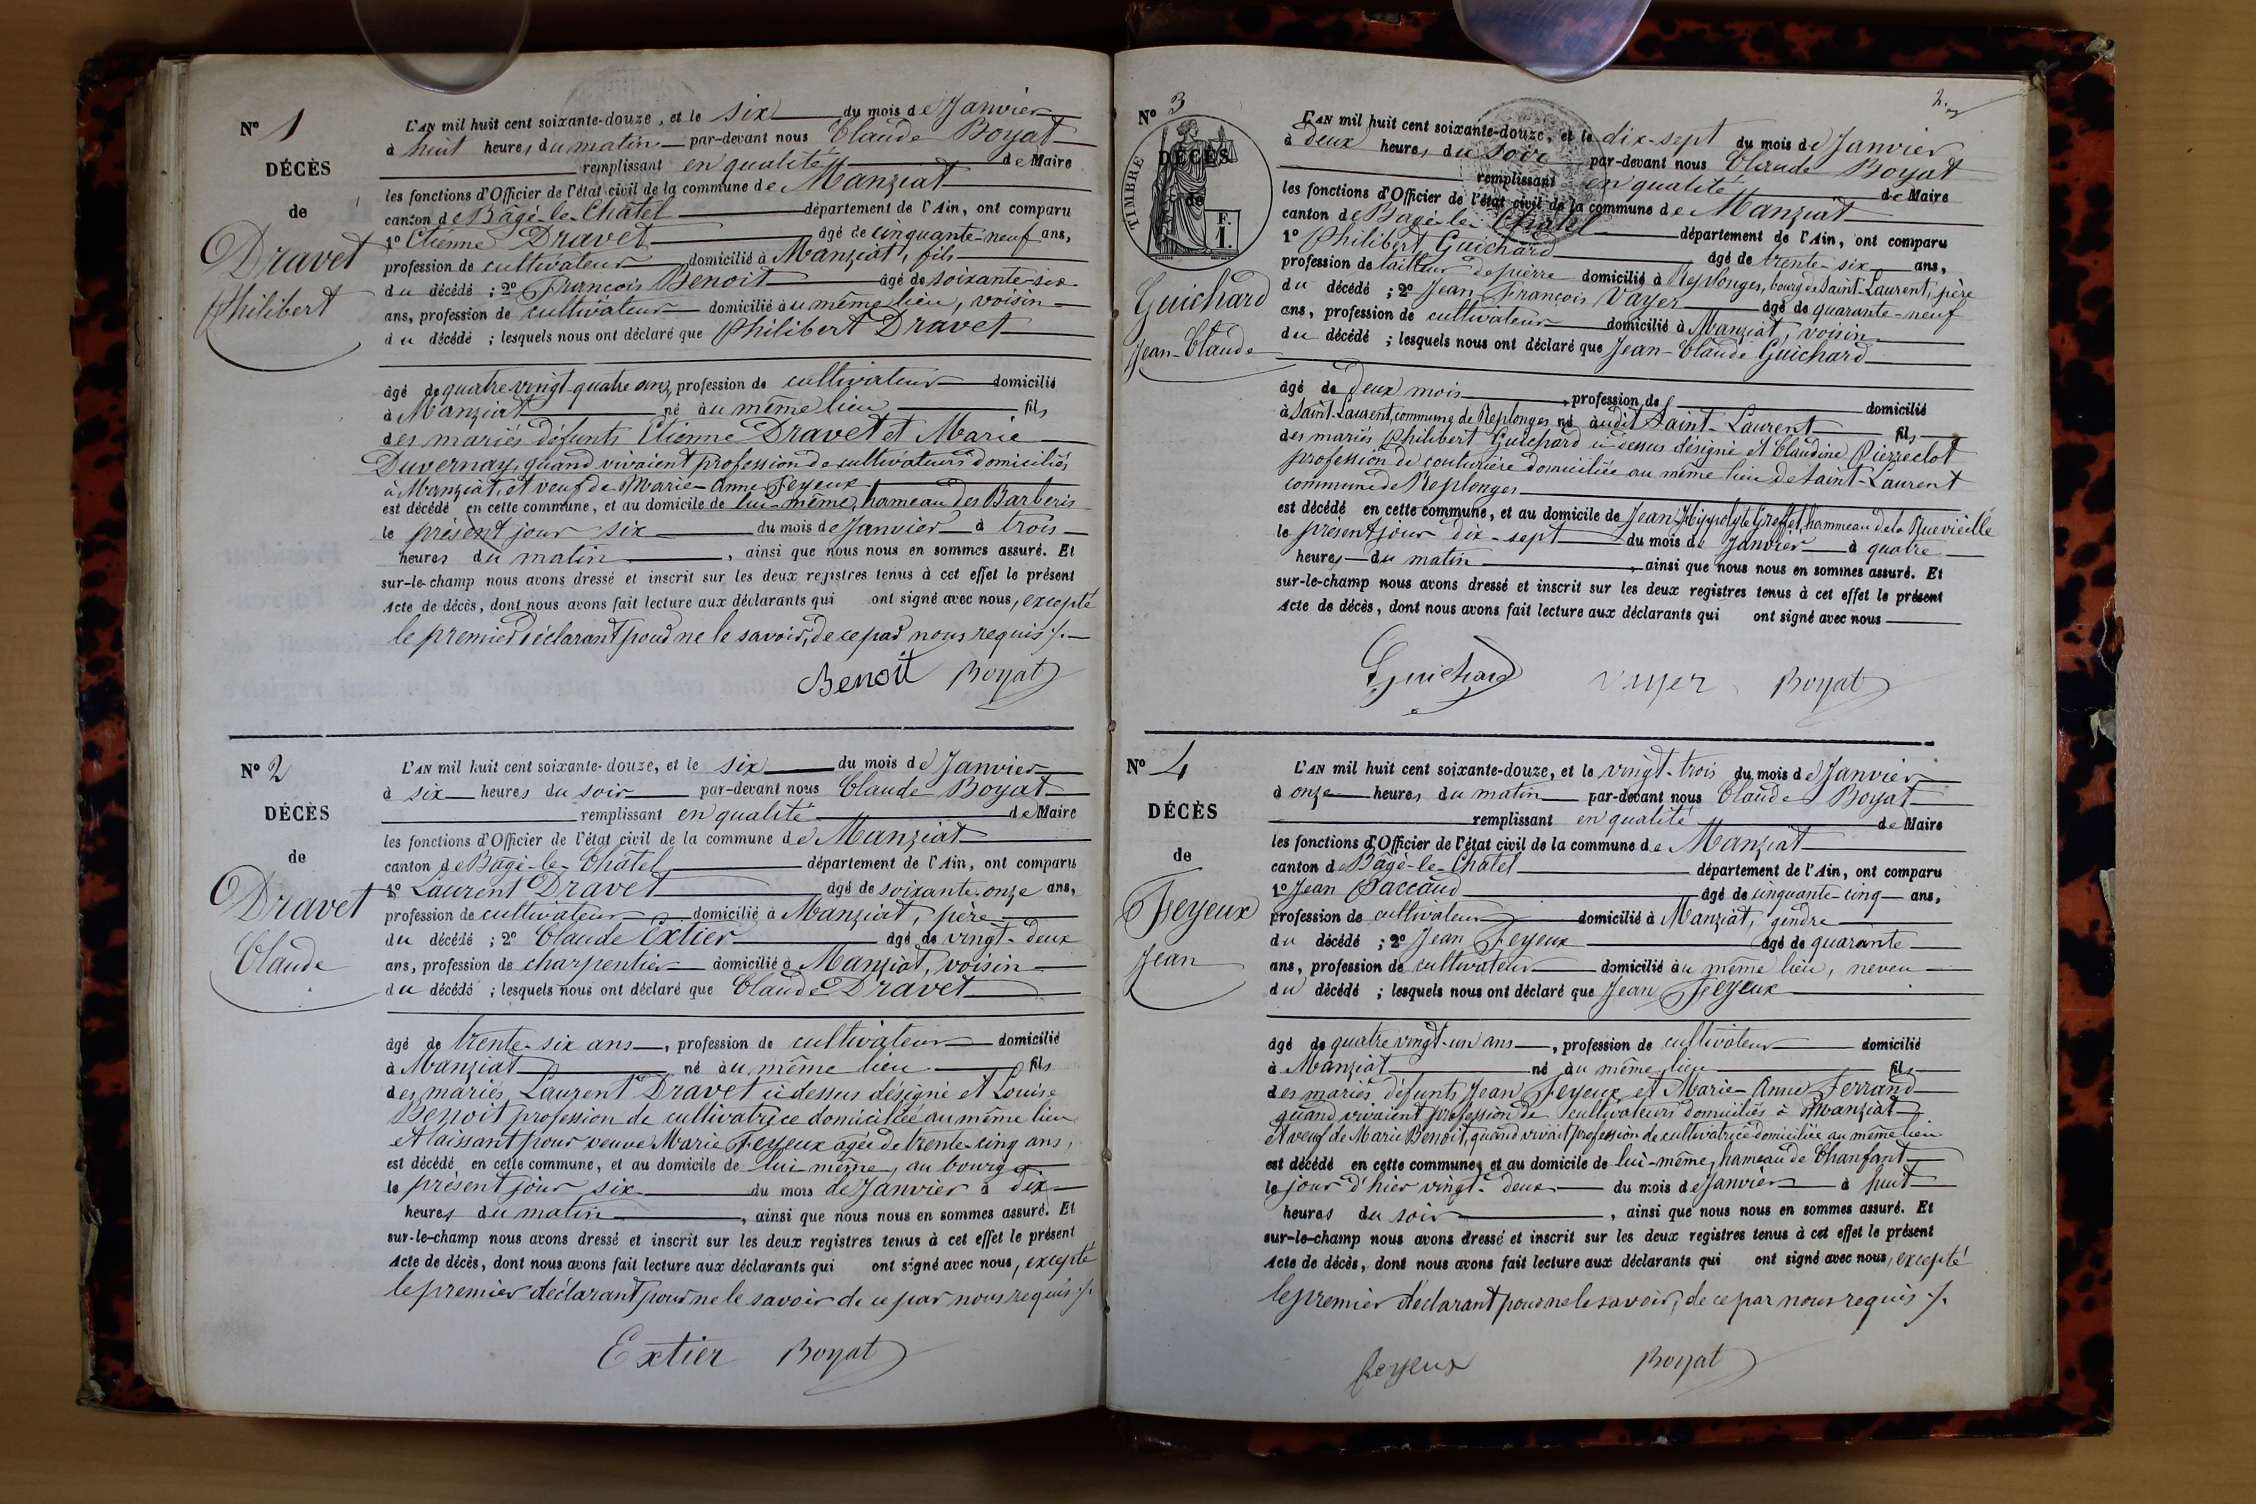 N° 1
DÉCÈS
de
Dravet
Philibert
L'AN mil huit cent soixante-douze, et le six du mois de Janvier
à huit heures du matin par-devant nous Claude Boyat
remplissant en qualité de Maire
les fonctions d'Officier de l'état civil de la commune de Manziat
canton de Bâgé-le-Châtel département de l'Ain, ont comparu
1° Etienne Dravet âgé de cinquante-neuf ans,
profession de cultivateur domicilié à Manziat, fils
du décédé ; 2° François Benoit âgé de soixante-six
ans, profession de cultivateur domicilié au même lieu, voisin
du décédé ; lesquels nous ont déclaré que Philibert Dravet
âgé de quatre vingt-quatre ans, profession de cultivateur domicilié
à Manziat né au même lieu fils
des mariés défunts Etienne Dravet et Marie
Duvernay, quand vivaient profession de cultivateurs domiciliés
à Manziat, et veuf de Marie-Anne Feyeux
est décédé en cette commune, et au domicile de lui-même, hameau des Barberis
le présent jour six du mois de Janvier à trois
heures du matin, ainsi que nous nous en sommes assuré. Et
sur-le-champ nous avons dressé et inscrit sur les deux registres tenus à cet effet le présent
Acte de décès, dont nous avons fait lecture aux déclarants qui ont signé avec nous, excepté
le premier déclarant pour ne le savoir, de ce par nous requis ./.
Benoit Boyat
N° 2
DÉCÈS
de
Dravet
Claude
L'AN mil huit cent soixante-douze, et le six du mois de Janvier
à six heures du soir par-devant nous Claude Boyat
remplissant en qualité de Maire
les fonctions d'Officier de l'état civil de la commune de Manziat
canton de Bâgé-le-Châtel département de l'Ain, ont comparu
1° Laurent Dravet âgé de soixante-onze ans,
profession de cultivateur domicilié à Manziat, père
du décédé ; 2° Claude Extier âgé de vingt-deux
ans, profession de charpentier domicilié à Manziat, voisin
du décédé ; lesquels nous ont déclaré que Claude Dravet
âgé de trente-six ans, profession de cultivateur domicilié
à Manziat né au même lieu fils
des mariés Laurent Dravet ci dessus désigné et Louise
Benoit profession de cultivatrice domiciliée au même lieu
et laissant pour veuve Marie Feyeux agée de trente-cinq ans,
est décédé en cette commune, et au domicile de lui-même, au bourg
le présent jour six du mois de Janvier à dix
heures du matin, ainsi que nous nous en sommes assuré. Et
sur-le-champ nous avons dressé et inscrit sur les deux registres tenus à cet effet le présent
Acte de décès, dont nous avons fait lecture aux déclarants qui ont signé avec nous, excepté
le premier déclarant pour ne le savoir de ce par nous requis ./.
Extier Boyat
2
N° 3
TIMBRE
DÉCÈS
de
F.
1.
Guichard
Jean-Claude
L'AN mil huit cent soixante-douze, et le dix-sept du mois de Janvier
à deux heures du soir par-devant nous Claude Boyat
remplissant en qualité de Maire
les fonctions d'Officier de l'état civil de la commune de Manziat
canton de Bâgé-le-Châtel département de l'Ain, ont comparu
1° Philibert Guichard âgé de trente-six ans,
profession de tailleur de pierre domicilié à Replonges, bourg de Saint-Laurent, père
du décédé ; 2° Jean François Vayer âgé de quarante-neuf
ans, profession de cultivateur domicilié à Manziat, voisin
du décédé ; lesquels nous ont déclaré que Jean-Claude Guichard
âgé de deux mois, profession de domicilié
à Saint-Laurent, commune de Replonges né audit Saint-Laurent fils
des mariés Philibert Guichard ci-dessus désigné et Claudine Pierreclot
profession de couturière domiciliée au même lieu de Saint-Laurent
commune de Replonges
est décédé en cette commune, et au domicile de Jean Hippolyte Greffet, hammeau de la Ruevieille
le présent jour dix-sept du mois de Janvier à quatre
heures du matin, ainsi que nous nous en sommes assuré. Et
sur-le-champ nous avons dressé et inscrit sur les deux registres tenus à cet effet le présent
Acte de décès, dont nous avons fait lecture aux déclarants qui ont signé avec nous
Guichard Vayer Boyat
N° 4
DÉCÈS
de
Feyeux
Jean
L'AN mil huit cent soixante-douze, et le vingt-trois du mois de Janvier
à onze heures du matin par-devant nous Claude Boyat
remplissant en qualité de Maire
les fonctions d'Officier de l'état civil de la commune de Manziat
canton de Bâgé-le-Châtel département de l'Ain, ont comparu
1° Jean Paccaud âgé de cinquante-cinq ans,
profession de cultivateur domicilié à Manziat, gendre
du décédé ; 2° Jean Feyeux âgé de quarante
ans, profession de cultivateur domicilié au même lieu, neveu
du décédé ; lesquels nous ont déclaré que Jean Feyeux
âgé de quatre vingt-un ans, profession de cultivateur domicilié
à Manziat né au même lieu fils
des mariés défunts Jean Feyeux et Marie-Anne Ferrand
quand vivaient profession de cultivateurs domiciliés à Manziat
et veuf de Marie Benoit, quand vivait profession de cultivatrice domiciliée au même lieu
est décédé en cette commune, et au domicile de lui-même, hameau de Chanfant
le jour d'hier vingt-deux du mois de Janvier à huit
heures du soir, ainsi que nous nous en sommes assuré. Et
sur-le-champ nous avons dressé et inscrit sur les deux registres tenus à cet effet le présent
Acte de décès, dont nous avons fait lecture aux déclarants qui ont signé avec nous, excepté
le premier déclarant pour ne le savoir, de ce par nous requis ./.
feyeux Boyat